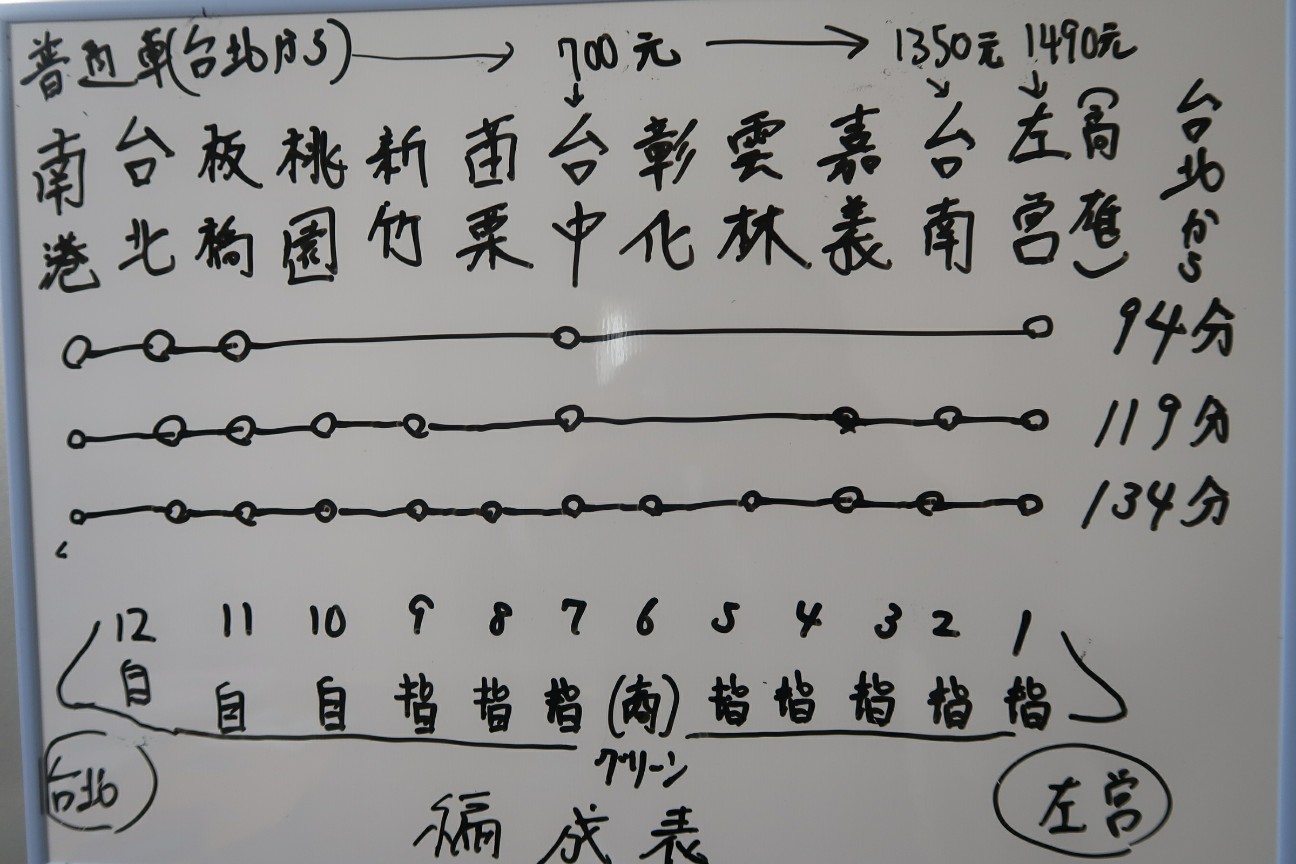 普通車(台北から) → 700元 → 1350元 1490元
南港 台北 板橋 桃園 新竹 苗栗 台中 彰化 雲林 嘉義 台南 左営(高雄) 台北から
94分
119分
134分
12 11 10 9 8 7 6 5 4 3 2 1
自 自 自 指 指 指 (商) 指 指 指 指 指
グリーン
台北 左営
編成表